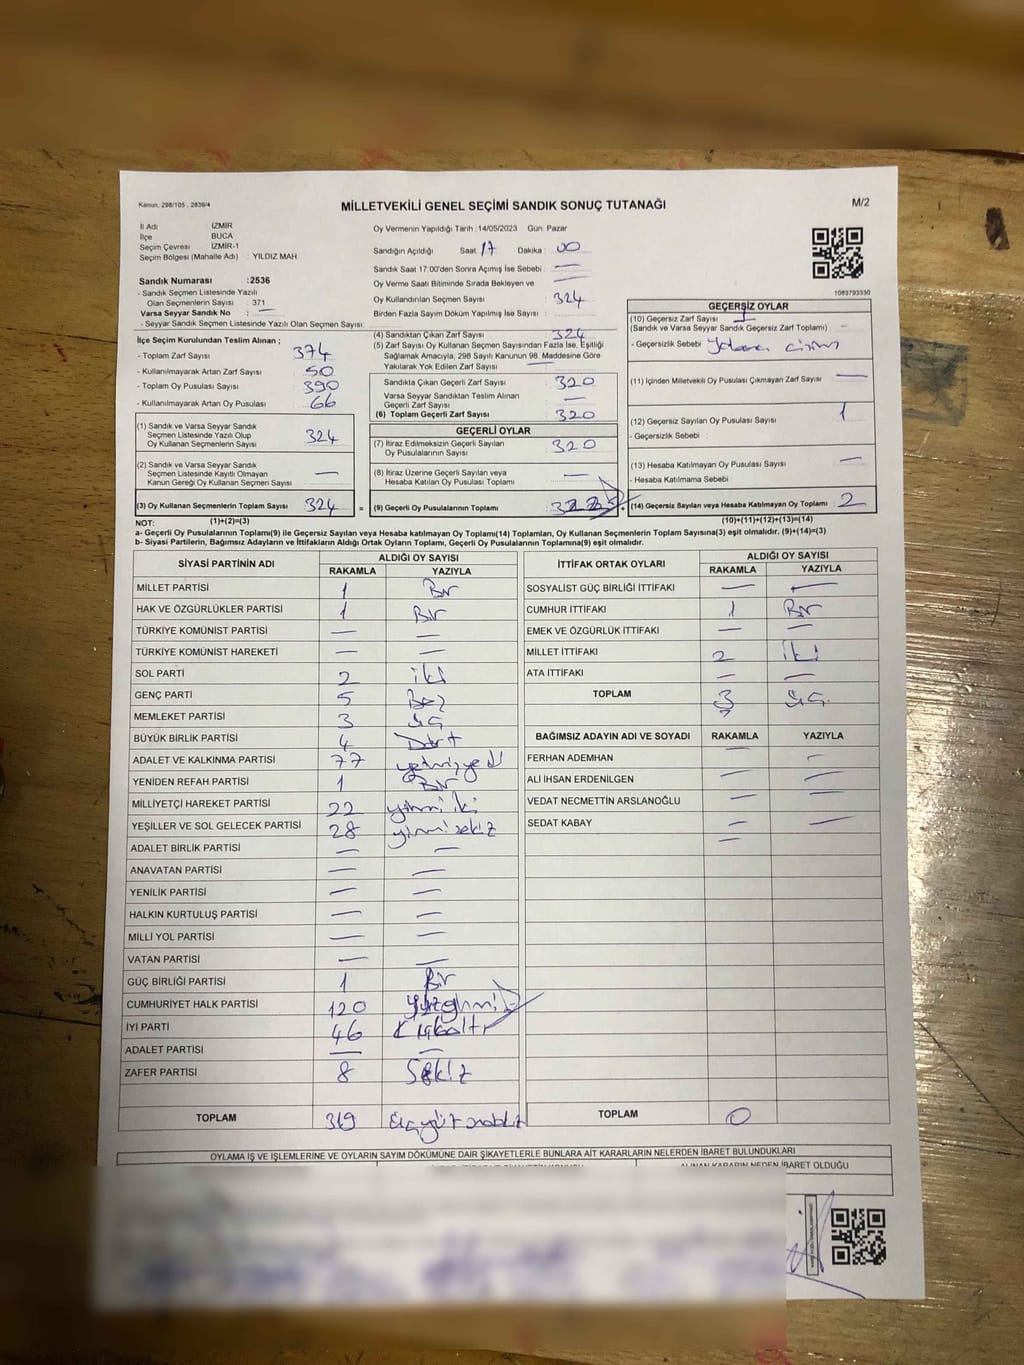 Kanun, 298/105 , 2839/4
MİLLETVEKİLİ GENEL SEÇİMİ SANDIK SONUÇ TUTANAĞI
M/2
İl Adı İZMİR
İlçe BUCA
Seçim Çevresi İZMİR-1
Seçim Bölgesi (Mahalle Adı) : YILDIZ MAH.
Sandık Numarası :2536
- Sandık Seçmen Listesinde Yazılı
Olan Seçmenlerin Sayısı : 371
Varsa Seyyar Sandık No : —
- Seyyar Sandık Seçmen Listesinde Yazılı Olan Seçmen Sayısı:
Oy Vermenin Yapıldığı Tarih :14/05/2023 Gün: Pazar
Sandığın Açıldığı Saat: 17 Dakika : 00
Sandık Saat 17:00'den Sonra Açımış İse Sebebi : —
Oy Verme Saati Bitiminde Sırada Bekleyen ve
Oy Kullandırılan Seçmen Sayısı : 324
Birden Fazla Sayım Döküm Yapılmış İse Sayısı : —
1083793330
İlçe Seçim Kurulundan Teslim Alınan ;
- Toplam Zarf Sayısı : 374
- Kullanılmayarak Artan Zarf Sayısı : 50
- Toplam Oy Pusulası Sayısı : 390
- Kullanılmayarak Artan Oy Pusulası : 66
(1) Sandık ve Varsa Seyyar Sandık
Seçmen Listesinde Yazılı Olup
Oy Kullanan Seçmenlerin Sayısı 324
(2) Sandık ve Varsa Seyyar Sandık
Seçmen Listesinde Kayıtlı Olmayan
Kanun Gereği Oy Kullanan Seçmen Sayısı —
(3) Oy Kullanan Seçmenlerin Toplam Sayısı 324
(4) Sandıktan Çıkan Zarf Sayısı : 324
(5) Zarf Sayısı Oy Kullanan Seçmen Sayısından Fazla İse, Eşitliği
Sağlamak Amacıyla, 298 Sayılı Kanunun 98. Maddesine Göre
Yakılarak Yok Edilen Zarf Sayısı : —
Sandıkta Çıkan Geçerli Zarf Sayısı : 320
Varsa Seyyar Sandıktan Teslim Alınan
Geçerli Zarf Sayısı : —
(6) Toplam Geçerli Zarf Sayısı : 320
GEÇERLİ OYLAR
(7) İtiraz Edilmeksizin Geçerli Sayılan
Oy Pusulalarının Sayısı : 320
(8) İtiraz Üzerine Geçerli Sayılan veya
Hesaba Katılan Oy Pusulası Toplamı : —
= (9) Geçerli Oy Pusulalarının Toplamı +
GEÇERSİZ OYLAR
(10) Geçersiz Zarf Sayısı : 1
(Sandık ve Varsa Seyyar Sandık Geçersiz Zarf Toplamı) —
- Geçersizlik Sebebi :
(11) İçinden Milletvekili Oy Pusulası Çıkmayan Zarf Sayısı : —
(12) Geçersiz Sayılan Oy Pusulası Sayısı : 1
- Geçersizlik Sebebi :
(13) Hesaba Katılmayan Oy Pusulası Sayısı : —
- Hesaba Katılmama Sebebi :
(14) Geçersiz Sayılan veya Hesaba Katılmayan Oy Toplamı : 2
NOT: (1)+(2)=(3) (10)+(11)+(12)+(13)=(14)
a- Geçerli Oy Pusulalarının Toplamı(9) ile Geçersiz Sayılan veya Hesaba katılmayan Oy Toplamı(14) Toplamları, Oy Kullanan Seçmenlerin Toplam Sayısına(3) eşit olmalıdır. (9)+(14)=(3)
b- Siyasi Partilerin, Bağımsız Adayların ve İttifakların Aldığı Ortak Oyların Toplamı, Geçerli Oy Pusulalarının Toplamına(9) eşit olmalıdır.
SİYASİ PARTİNİN ADI ALDIĞI OY SAYISI
RAKAMLA YAZIYLA
MİLLET PARTİSİ 1 Bir
HAK VE ÖZGÜRLÜKLER PARTİSİ 1 Bir
TÜRKİYE KOMÜNİST PARTİSİ — —
TÜRKİYE KOMÜNİST HAREKETİ — —
SOL PARTİ 2 iki
GENÇ PARTİ 5 Beş
MEMLEKET PARTİSİ 3 üç
BÜYÜK BİRLİK PARTİSİ 4 Dört
ADALET VE KALKINMA PARTİSİ 77 yetmişyedi
YENİDEN REFAH PARTİSİ 1 Bir
MİLLİYETÇİ HAREKET PARTİSİ 22 yirmi iki
YEŞİLLER VE SOL GELECEK PARTİSİ 28 yirmi sekiz
ADALET BİRLİK PARTİSİ — —
ANAVATAN PARTİSİ — —
YENİLİK PARTİSİ — —
HALKIN KURTULUŞ PARTİSİ — —
MİLLİ YOL PARTİSİ — —
VATAN PARTİSİ — —
GÜÇ BİRLİĞİ PARTİSİ 1 Bir
CUMHURİYET HALK PARTİSİ 120 yüzyirmi
İYİ PARTİ 46 Kırkaltı
ADALET PARTİSİ — —
ZAFER PARTİSİ 8 Sekiz
TOPLAM 319
İTTİFAK ORTAK OYLARI ALDIĞI OY SAYISI
RAKAMLA YAZIYLA
SOSYALİST GÜÇ BİRLİĞİ İTTİFAKI — —
CUMHUR İTTİFAKI 1 Bir
EMEK VE ÖZGÜRLÜK İTTİFAKI — —
MİLLET İTTİFAKI 2 iki
ATA İTTİFAKI — —
TOPLAM 3 üç
BAĞIMSIZ ADAYIN ADI VE SOYADI RAKAMLA YAZIYLA
FERHAN ADEMHAN — —
ALİ İHSAN ERDENİLGEN — —
VEDAT NECMETTİN ARSLANOĞLU — —
SEDAT KABAY — —
TOPLAM 0
OYLAMA İŞ VE İŞLEMLERİNE VE OYLARIN SAYIM DÖKÜMÜNE DAİR ŞİKAYETLERLE BUNLARA AİT KARARLARIN NELERDEN İBARET BULUNDUKLARI
ALINAN KARARIN NEDEN İBARET OLDUĞU